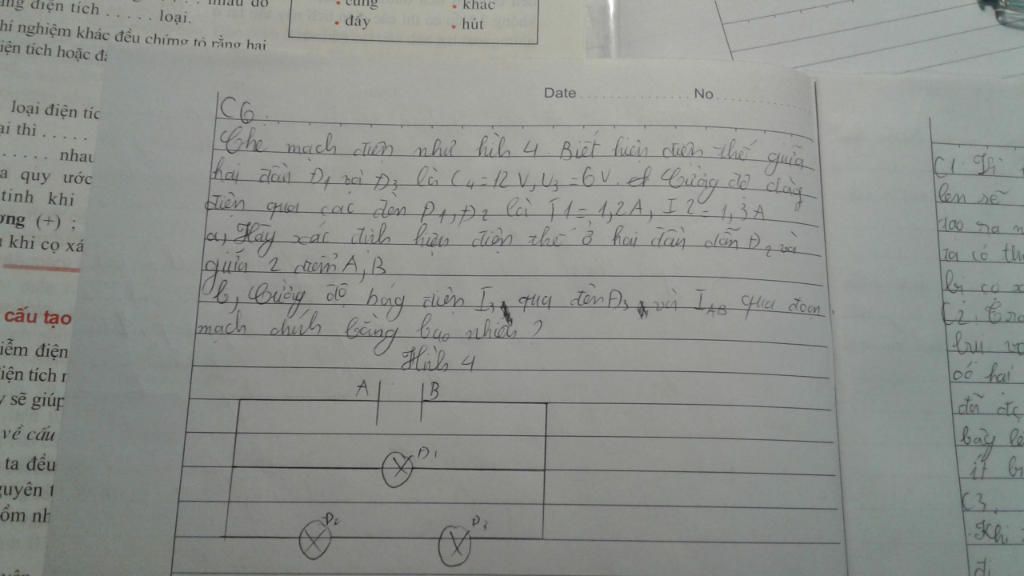 điện tích . . . . . loại.
hí nghiệm khác đều chứng tỏ rằng hai
iện tích hoặc
cùng
khác
đẩy
hút
loại điện tíc
ại thì . . . . .
. . . . . nhau
a quy ước
tinh khi
ơng (+) ;
khi cọ xá
cấu tạo
iễm điện
iện tích r
y sẽ giúp
về cấu
ta đều
guyên t
ồm nh
Date . . . . . . . . . . . . . . No . . . . . . . . . . . . . .
C6.
Cho mạch điện như hình 4 Biết hiệu điện thế giữa
hai đèn Đ1 và Đ3 là = 12 V, U3 = 6V. Cường độ dòng
điện qua các đèn Đ1, Đ2 là I1 = 1,2A, I2 = 1,3A
a, Hãy xác định hiệu điện thế ở hai đầu Đ2 và
giữa 2 điểm A, B
b, Cường độ điện I3 qua đèn Đ3 và IAB qua đoạn
mạch chính bằng bao nhiêu ?
Hình 4
A B
Đ1
Đ2 Đ3
C1.
lên sẽ
tạo ra
ra có
bị cọ
C2.
có hai
C3.
Khi
đi